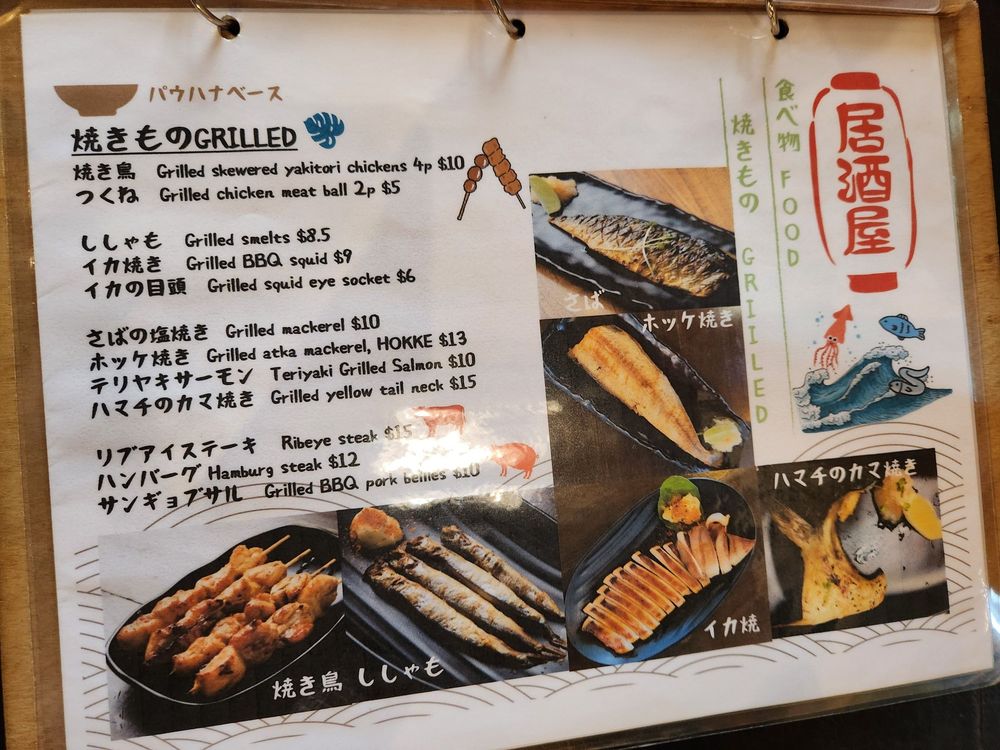 パウハナベース
焼きものGRILLED
焼き鳥 Grilled skewered yakitori chickens 4p $10
つくね Grilled chicken meat ball 2p $5
ししゃも Grilled smelts $8.5
イカ焼き Grilled BBQ squid $9
イカの目頭 Grilled squid eye socket $6
さばの塩焼き Grilled mackerel $10
ホッケ焼き Grilled atka mackerel, HOKKE $13
テリヤキサーモン Teriyaki Grilled Salmon $10
ハマチのカマ焼き Grilled yellow tail neck $15
リブアイステーキ Ribeye steak $15
ハンバーグ Hamburg steak $12
サンギョプサル Grilled BBQ pork bellies $10
居酒屋
食べ物 FOOD
焼きもの GRILLED
さば
ホッケ焼き
ハマチのカマ焼き
イカ焼
焼き鳥 ししゃも